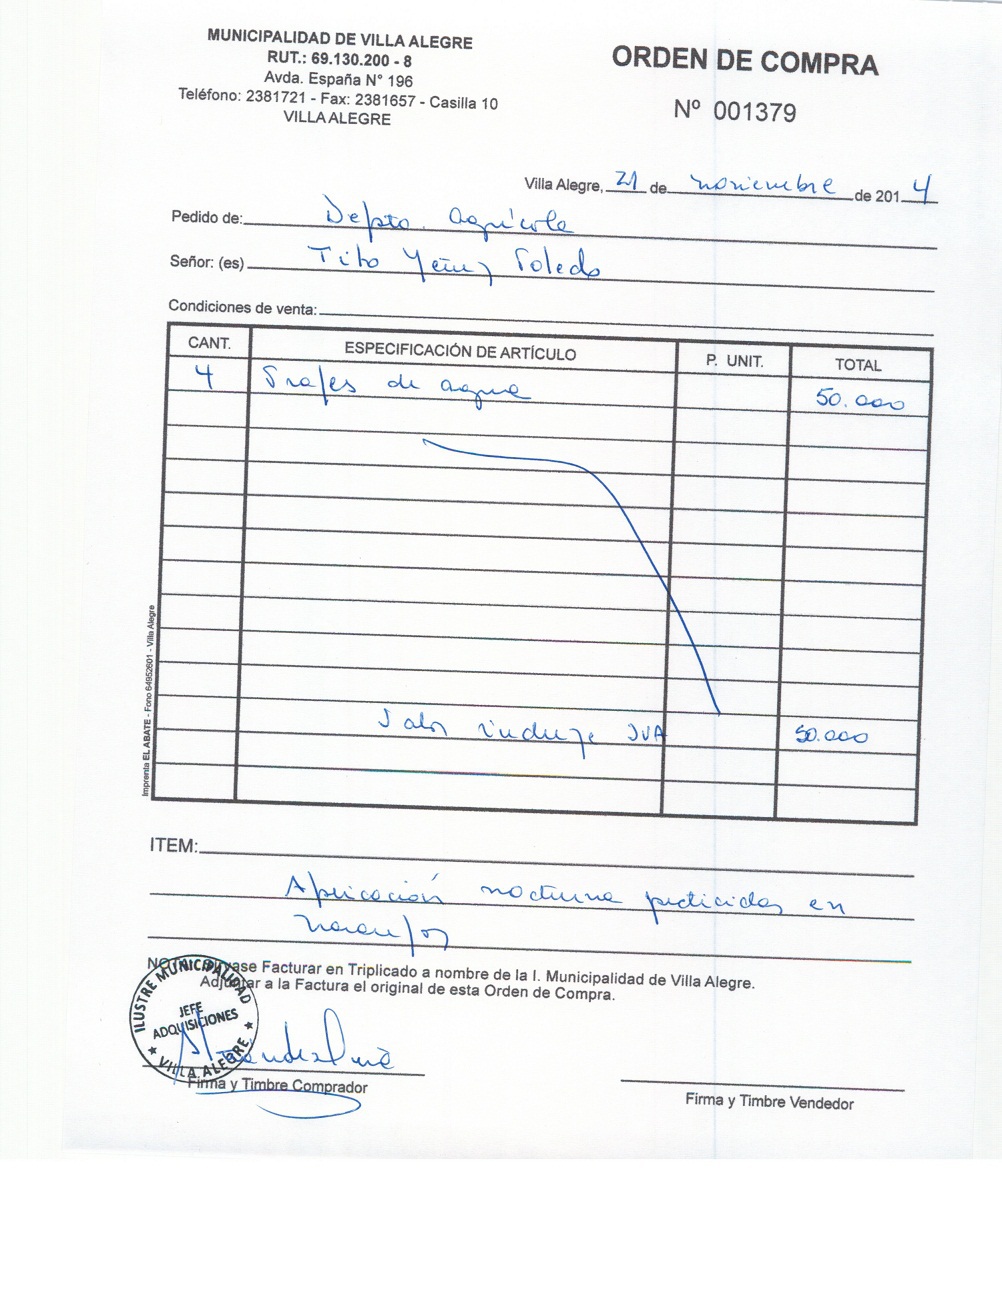 MUNICIPALIDAD DE VILLA ALEGRE
RUT.: 69.130.200 - 8
Avda. España N° 196
Teléfono: 2381721 - Fax: 2381657 - Casilla 10
VILLA ALEGRE
ORDEN DE COMPRA
Nº 001379
Villa Alegre, 21 de noviembre de 2014
Pedido de: Depto. Agrícola
Señor: (es) Tito Yañez Toledo
Condiciones de venta:
CANT. ESPECIFICACIÓN DE ARTÍCULO P. UNIT. TOTAL
4 Trajes de agua 50.000
Valor incluye IVA 50.000
Imprenta EL ABATE - Fono 64952601 - Villa Alegre
ITEM:
Aplicación nocturna pesticidas en
naranjos
Facturar en Triplicado a nombre de la I. Municipalidad de Villa Alegre.
Adjuntar a la Factura el original de esta Orden de Compra.
ILUSTRE MUNICIPALIDAD
JEFE
ADQUISICIONES
VILLA ALEGRE
Firma y Timbre Comprador
Firma y Timbre Vendedor